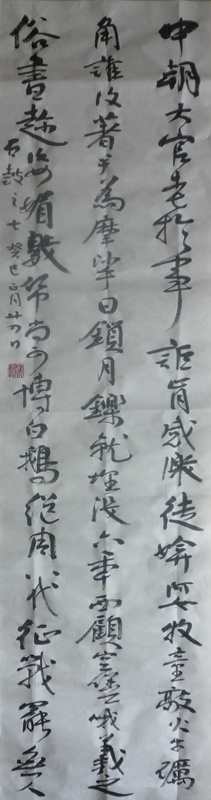 中朝大官老於事詎肯感激徒媕婀牧童敲火牛礪
角誰復著手為摩挲日銷月鑠就埋沒六年西顧空吟哦羲之
俗書趁姿媚數帋尚可博白鵝繼周八代征戰罷無人
石鼓之七癸巳正月廿日